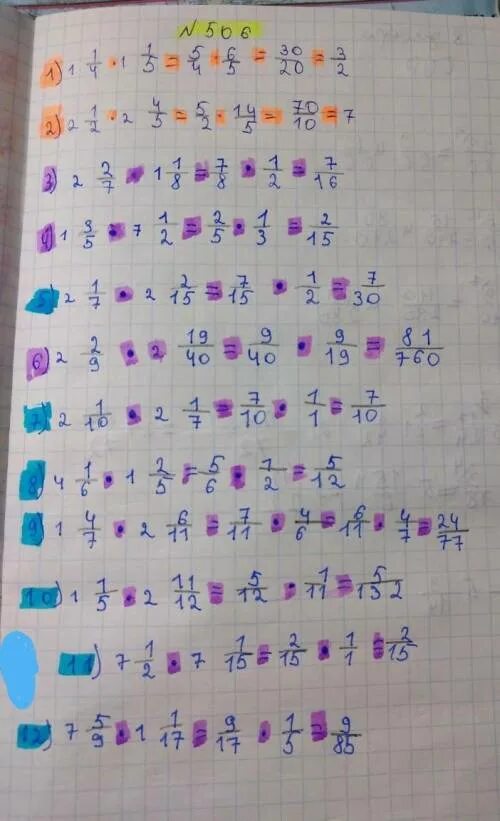 N 506
1) 1 1/4 · 1 1/5 = 5/4 · 6/5 = 30/20 = 3/2
2) 2 1/2 · 2 4/5 = 5/2 · 14/5 = 70/10 = 7
3) 2 2/7 · 1 1/8 = 7/8 · 1/2 = 7/16
4) 1 3/5 · 7 1/2 = 2/5 · 1/3 = 2/15
5) 2 1/7 · 2 2/15 = 7/15 · 1/2 = 7/30
6) 2 2/9 · 2 19/40 = 9/40 · 9/19 = 81/760
7) 2 1/10 · 2 1/7 = 7/10 · 1/1 = 7/10
8) 4 1/6 · 1 2/5 = 5/6 · 7/2 = 5/12
9) 1 4/7 · 2 6/11 = 7/11 · 4/6 = 6/11 · 4/7 = 24/77
10) 1 1/5 · 2 11/12 = 5/12 · 1/11 = 5/132
11) 7 1/2 · 7 1/15 = 2/15 · 1/1 = 2/15
12) 7 5/9 · 1 1/17 = 9/17 · 1/5 = 9/85